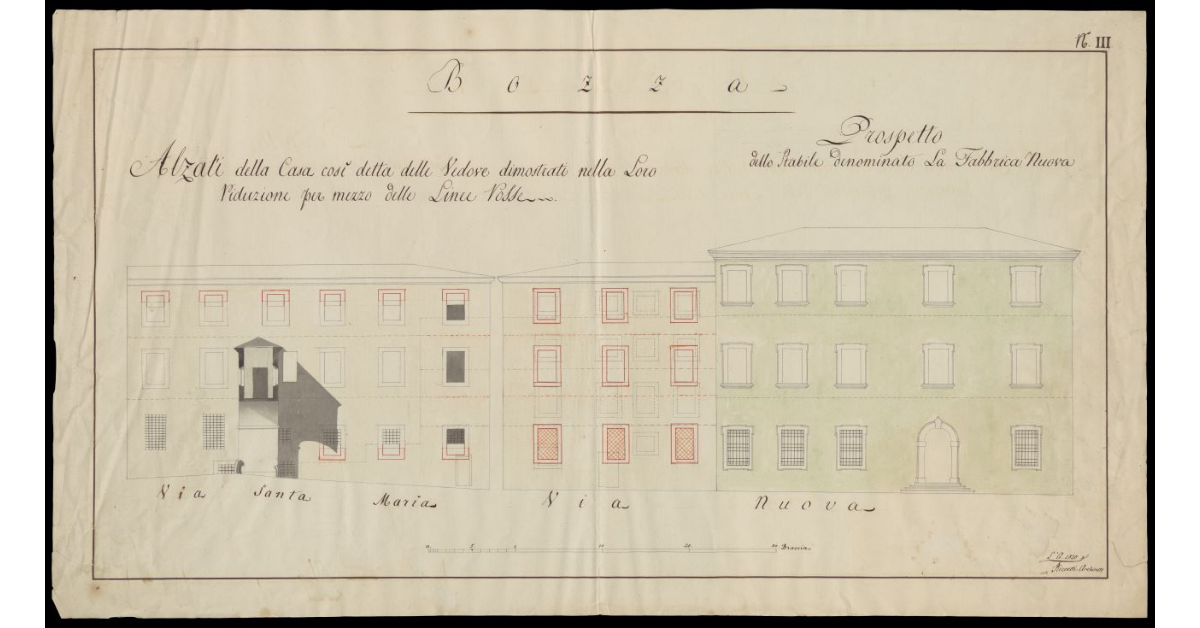 N. III
Bozza
Alzati della Casa così detta delle Vedove dimostrati nella Loro
Riduzione per mezzo delle Linee Rosse
Prospetto
dello Stabile denominato La Fabbrica Nuova
Via Santa Maria
Via Nuova
Braccia